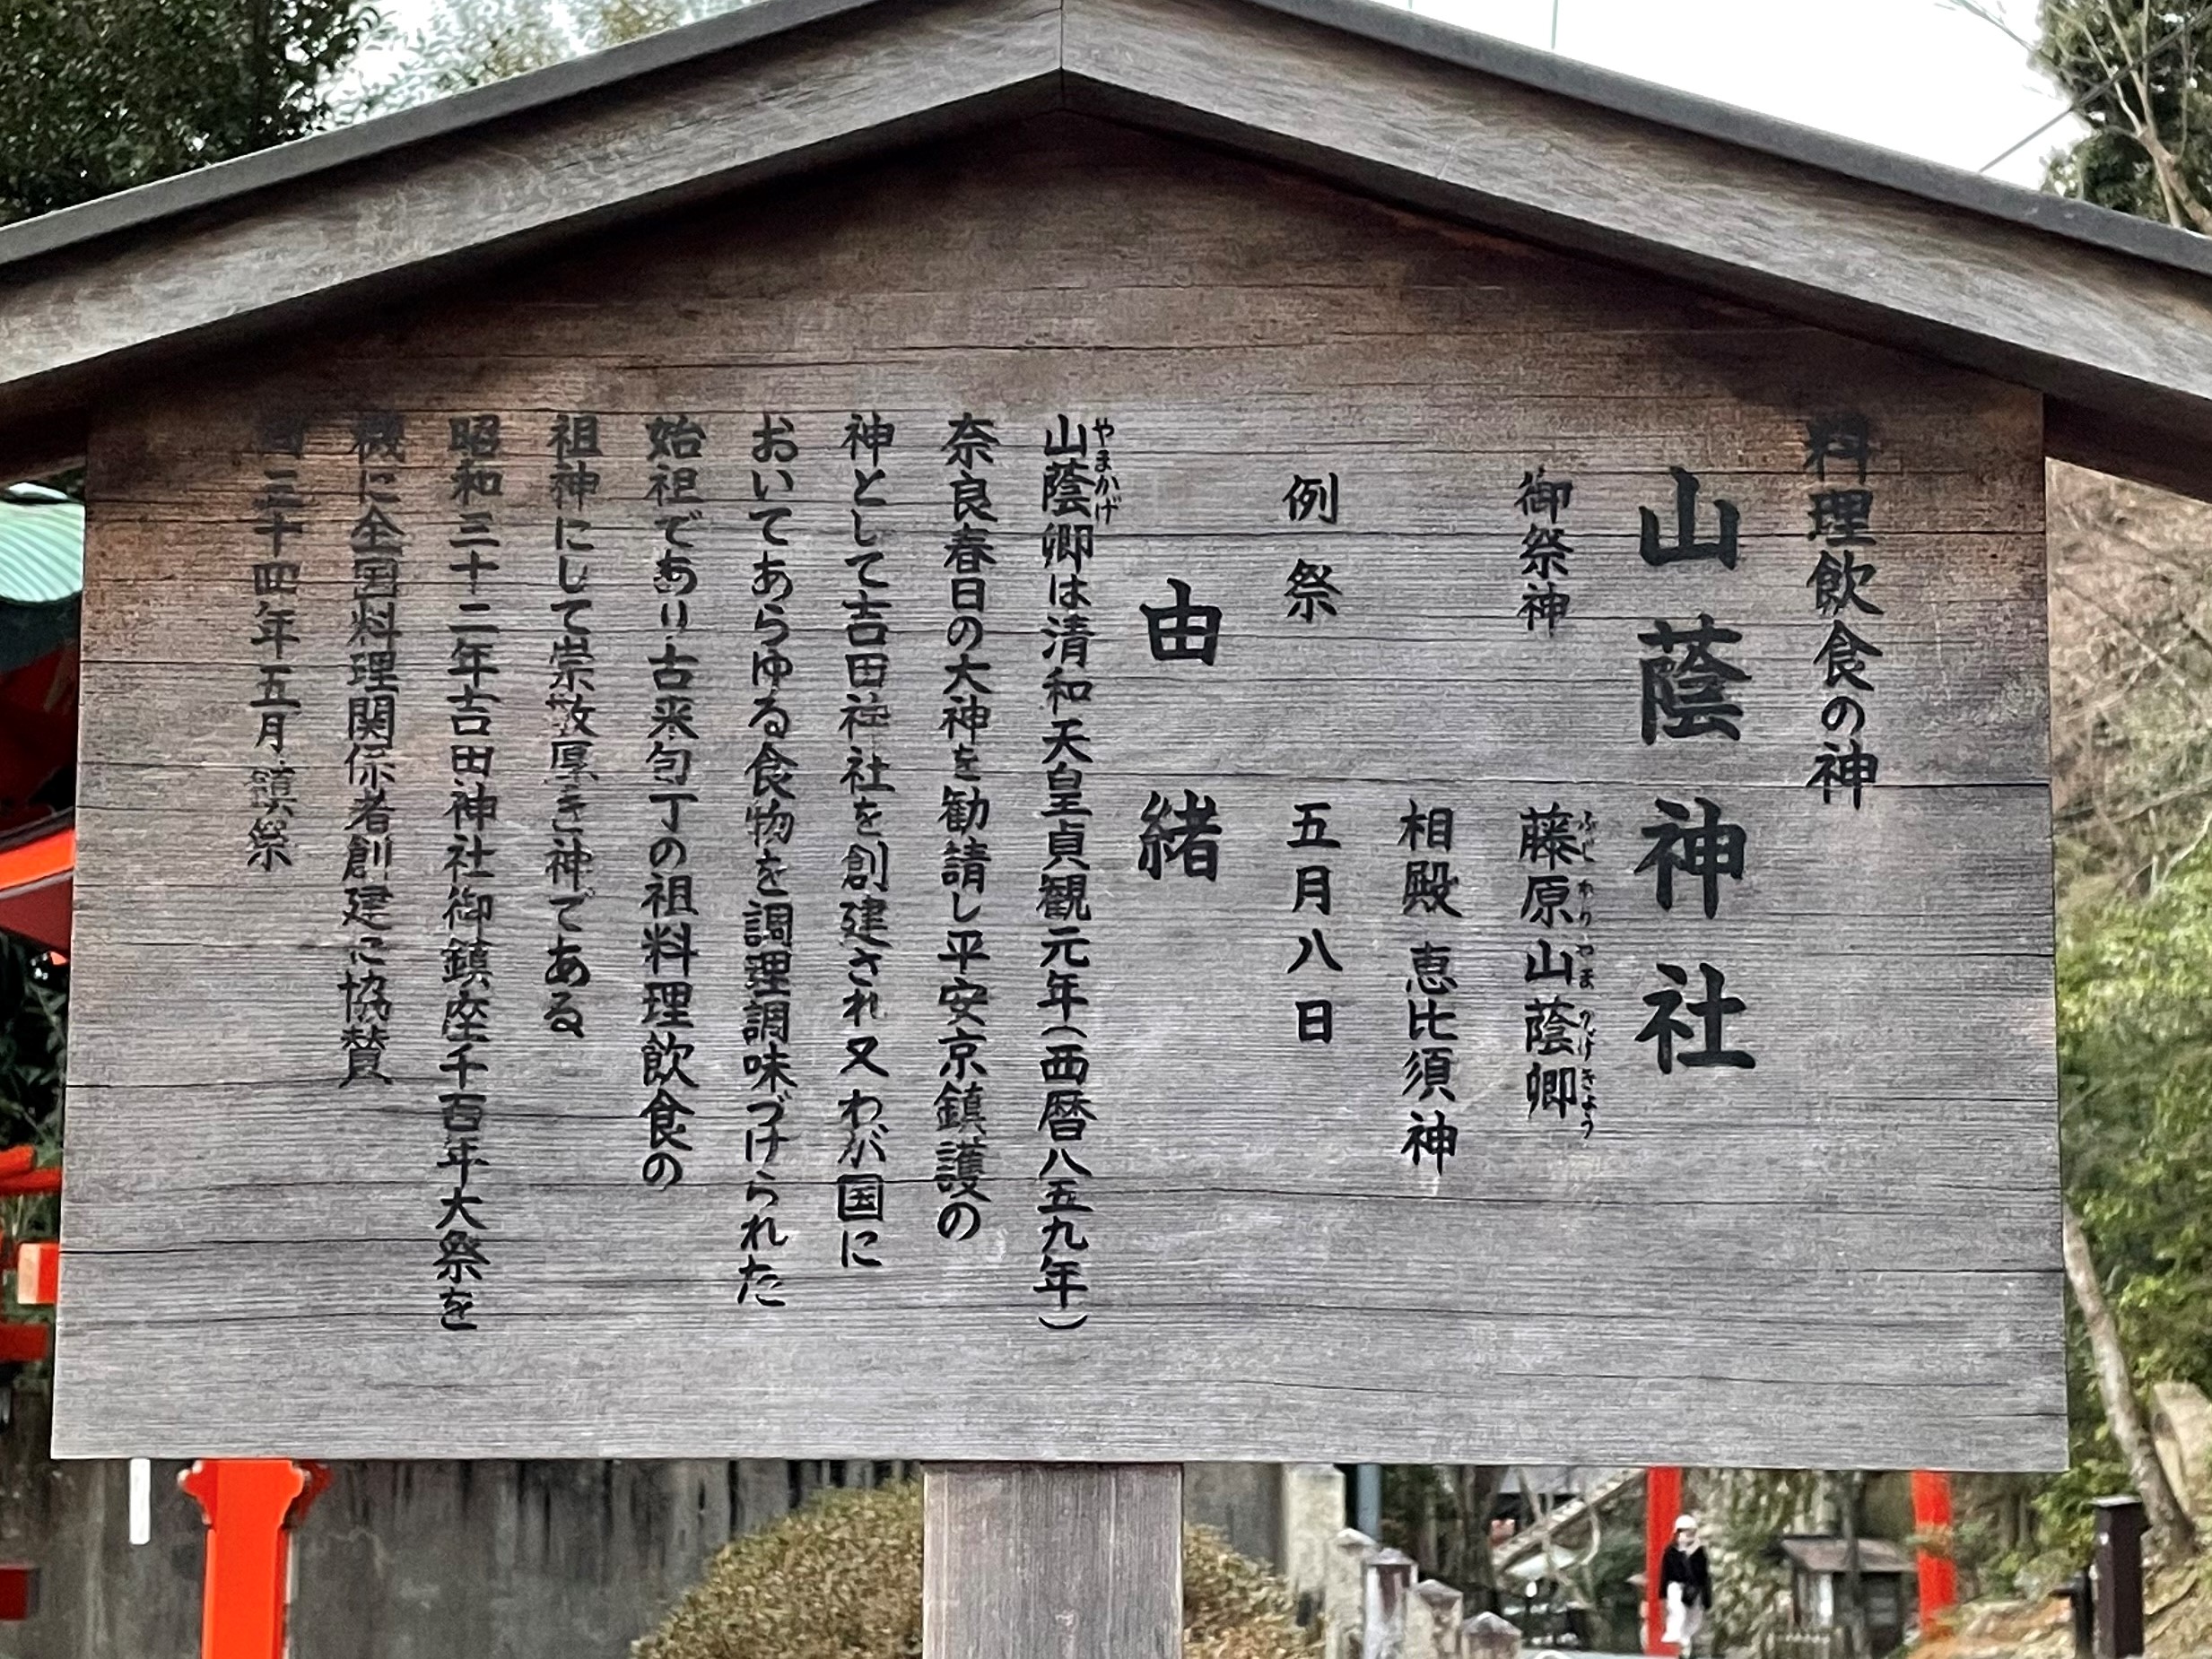 料理飲食の神
山蔭神社
御祭神 藤原山蔭卿
ふじわらやまかげきょう
相殿 恵比須神
例祭 五月八日
由緒
山蔭卿は清和天皇貞観元年(西暦八五九年)
やまかげ
奈良春日の大神を勧請し平安京鎮護の
神として吉田神社を創建され又わが国に
おいてあらゆる食物を調理調味づけられた
始祖であり古来包丁の祖料理飲食の
祖神にして崇敬厚き神である
昭和三十二年吉田神社御鎮座千百年大祭を
機に全国料理関係者創建に協賛
三十四年五月鎮祭